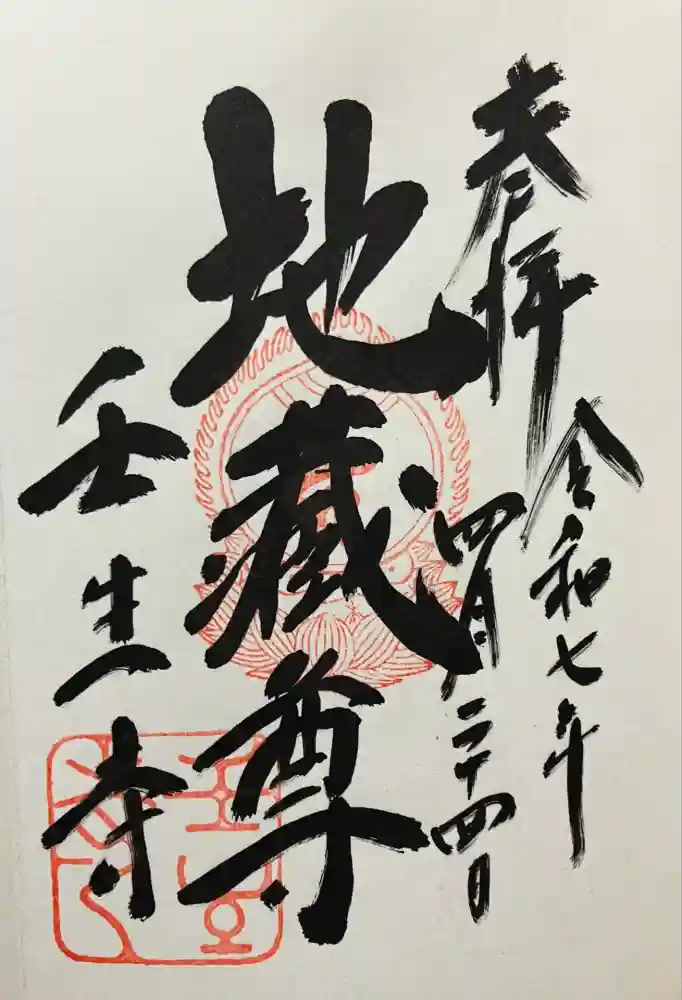 参拝
令和七年
四月二十四日
地藏尊
壬生寺